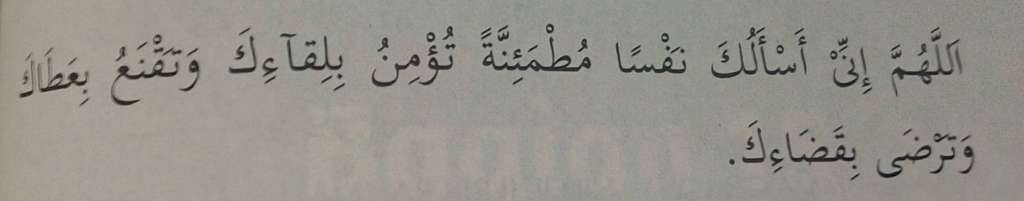 اَللَّهُمَّ إِنِّيْ أَسْأَلُكَ نَفْسًا مُطْمَئِنَّةً تُؤْمِنُ بِلِقآءِكَ وَتَقْنَعُ بِعَطَاكَ
وَتَرْضَى بِقَضَاءِكَ.